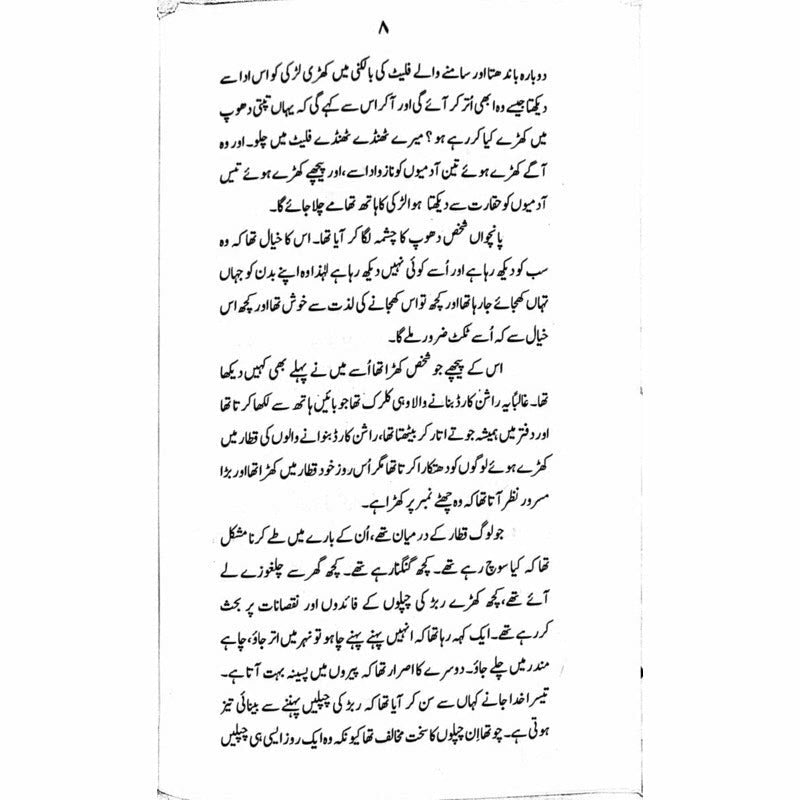 ۸
دوبارہ باندھتا اور سامنے والے فلیٹ کی بالکنی میں کھڑی لڑکی کو اس ادا سے
دیکھتا جیسے وہ ابھی اُتر کر آئے گی اور آکر اس سے کہے گی کہ یہاں تپتی دھوپ
میں کھڑے کیا کر رہے ہو؟ میرے ٹھنڈے ٹھنڈے فلیٹ میں چلو۔ اور وہ
آگے کھڑے ہوئے تین آدمیوں کو ناز و ادا سے، اور پیچھے کھڑے ہوئے تیس
آدمیوں کو حقارت سے دیکھتا ہوا لڑکی کا ہاتھ تھامے چلا جائے گا۔
پانچواں شخص دھوپ کا چشمہ لگا کر آیا تھا۔ اس کا خیال تھا کہ وہ
سب کو دیکھ رہا ہے اور اُسے کوئی نہیں دیکھ رہا ہے لہٰذا وہ اپنے بدن کو جہاں
تہاں کھجائے جا رہا تھا اور کچھ تو اس کھجانے کی لذت سے خوش تھا اور کچھ اس
خیال سے کہ اُسے ٹکٹ ضرور ملے گا۔
اس کے پیچھے جو شخص کھڑا تھا اُسے میں نے پہلے بھی کہیں دیکھا
تھا۔ غالباً یہ راشن کارڈ بنانے والا وہی کلرک تھا جو بائیں ہاتھ سے لکھا کرتا تھا
اور دفتر میں ہمیشہ جوتے اتار کر بیٹھتا تھا، راشن کارڈ بنوانے والوں کی قطار میں
کھڑے ہوئے لوگوں کو دھتکارا کرتا تھا مگر اُس روز خود قطار میں کھڑا تھا اور بڑا
مسرور نظر آتا تھا کہ وہ چھٹے نمبر پر کھڑا ہے۔
جو لوگ قطار کے درمیان تھے، اُن کے بارے میں طے کرنا مشکل
تھا کہ کیا سوچ رہے تھے۔ کچھ گنگنا رہے تھے۔ کچھ گھر سے چلغوزے لے
آئے تھے، کچھ کھڑے ربڑ کی چپلوں کے فائدوں اور نقصانات پر بحث
کر رہے تھے۔ ایک کہہ رہا تھا کہ انہیں پہنے پہنے چاہو تو نہر میں اتر جاؤ، چاہے
مندر میں چلے جاؤ۔ دوسرے کا اصرار تھا کہ پیروں میں پسینہ بہت آتا ہے۔
تیسرا خدا جانے کہاں سے سن کر آیا تھا کہ ربڑ کی چپلیں پہننے سے بینائی تیز
ہوتی ہے۔ چوتھا اِن چپلوں کا سخت مخالف تھا کیونکہ وہ ایک روز ایسی ہی چپلیں